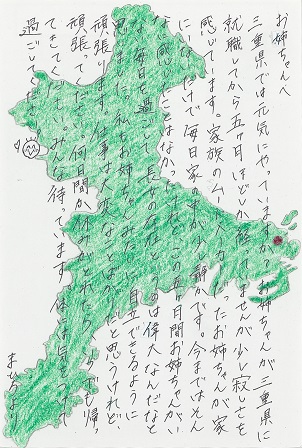 お姉ちゃんへ
三重県では元気にやっていますか？お姉ちゃんが三重県に
就職してから五ヶ月ほどしか経ってませんが少し寂しさを
感じています。家族のムードメーカーだったお姉ちゃんが家
にいないだけで毎日家の中が少し静かです。今まではそん
な感じたことはなかったけれどこの五ヶ月間お姉ちゃんがい
ない毎日を過ごして、長女の存在というのは偉大なんだなと
思いました。私もお姉ちゃんみたいに自立できるように
頑張ります。仕事は大変なことばかりだと思うけれど、
頑張ってください。何日間か休みがとれたらいつでも帰
てきてください。みんな待っています。体には気をつけて
過ごしてください。
まひろより